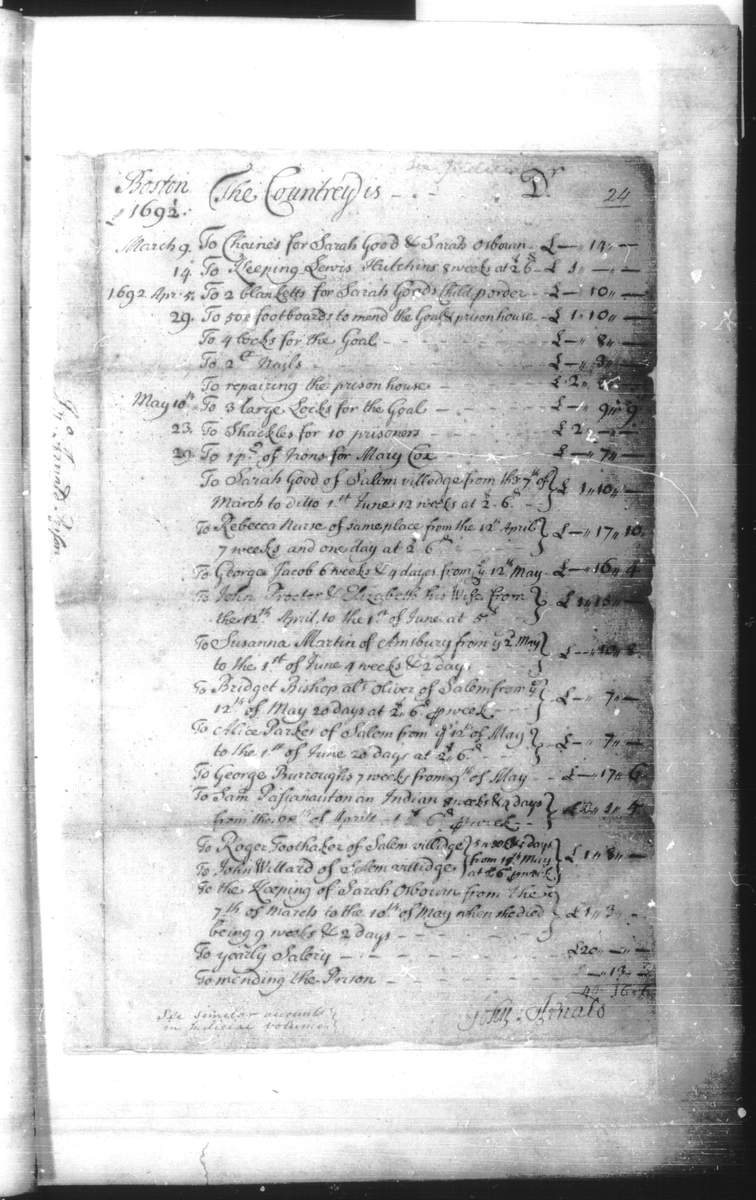 Boston The Countrey is - - - Dr 24
1692/1.
March 9. To Chaines for Sarah Good & Sarah Osbourn - £ — ,, 14 ,, —
14 To Keeping Lewis Hutchins 8 weeks at 2s 6d - £ 1 ,, — ,, —
1692 Apr. 5. To 2 blanketts for Sarah Goods Child pr order - £ — ,, 10 ,, —
29. To 500 footboards to mend the Goal & prison house - £ 1 ,, 10 ,, —
To 4 locks for the Goal - - - £ — ,, 8 ,, —
To 2ct Nails - - - £ — ,, 3 ,, —
To repairing the prison house - £ 2 ,,
May 10th To 3 large Locks for the Goal - - £ — ,, 9 ,, 9
23. To Shackles for 10 prisoners - - £ 2 — ,, —
29. To 14 of Irons for Mary Cox - - £ — ,, 7 ,, —
To Sarah Good of Salem villedge from the 7th of
March to ditto 1st June 12 weeks at 2s 6d £ 1 ,, 10 ,, —
To Rebecca Nurse of same place from the 12th April
7 weeks and one day at 2s 6d £ — ,, 17 ,, 10
To George Jacob 6 weeks & 4 dayes from ye 12th May £ — ,, 16 ,, 4
To John Procter & Elizabeth his Wife from
the 12th April, to the 1st of June at 5s £ 1 ,, 15 ,, —
To Susanna Martin of Amsbury from ye 2d May
to the 1st of June 4 weeks & 2 days £ — ,, 10 ,, 8
To Bridget Bishop als Oliver of Salem from ye
12th of May 20 days at 2s 6d pr week - £ — ,, 7 ,, —
To Alice Parker of Salem from ye 12th of May
to the 1st of June 20 days at 2s 6d £ — ,, 7 ,, —
To George Burroughs 7 weeks from 9th of May - - £ — ,, 17 ,, 6
To Sam Passanauton an Indian 8 weeks & 4 days
from the 28th of Aprill at 2s 6d pr week - £ 1 ,, 1 ,, 4
To Roger Toothaker of Salem villidge 5 weeks 5 days
To John Willard of Salem villidge from 18th May at 2s 6d pr week £ 1 ,, 8 ,, —
To the Keeping of Sarah Osbourn from the
7th of March to the 10th of May when she died
being 9 weeks & 2 days - - - £ 1 ,, 3 ,, -
To yearly Salery - - - £20 ,, — ,, —
To mending the Prison - - - — ,, 13
16 ,, 6
John Arnald
See similar accounts
in Judicial volumes
Jno Arnalds